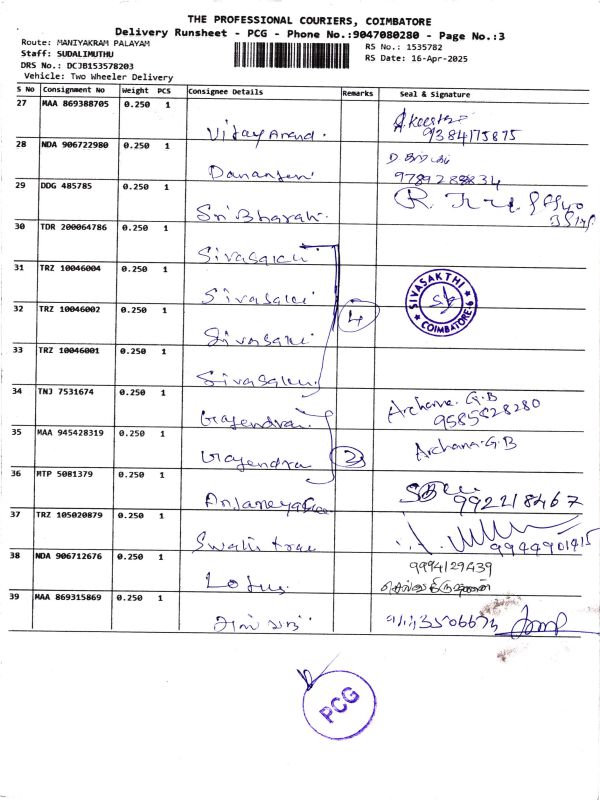 THE PROFESSIONAL COURIERS, COIMBATORE
Delivery Runsheet - PCG - Phone No.:9047080280 - Page No.:3
Route: MANIYAKRAM PALAYAM
RS No.: 1535782
Staff: SUDALIMUTHU
RS Date: 16-Apr-2025
DRS No.: DCJB153578203
Vehicle: Two Wheeler Delivery
S No Consignment No Weight PCS Consignee Details Remarks Seal & Signature
27 MAA 869388705 0.250 1
Vijay Anand. 9384175875
28 NDA 906722980 0.250 1
9789288834
29 DDG 485785 0.250 1
Sri Bharati.
30 TDR 200064786 0.250 1
Sivasakti
31 TRZ 10046004 0.250 1
Sivasakti
SIVASAKTHI
COIMBATORE
32 TRZ 10046002 0.250 1
4
Sivasakti
33 TRZ 10046001 0.250 1
Sivasakti
34 TNJ 7531674 0.250 1
Gajendran Archana. G.B
9585828280
35 MAA 945428319 0.250 1
Gajendra 2 Archana.G.B
36 MTP 5081379 0.250 1
Anjaneya 992218467
37 TRZ 105020879 0.250 1
9944901415
38 NDA 906712676 0.250 1 9994129439
Lotus
39 MAA 869315869 0.250 1
PCG